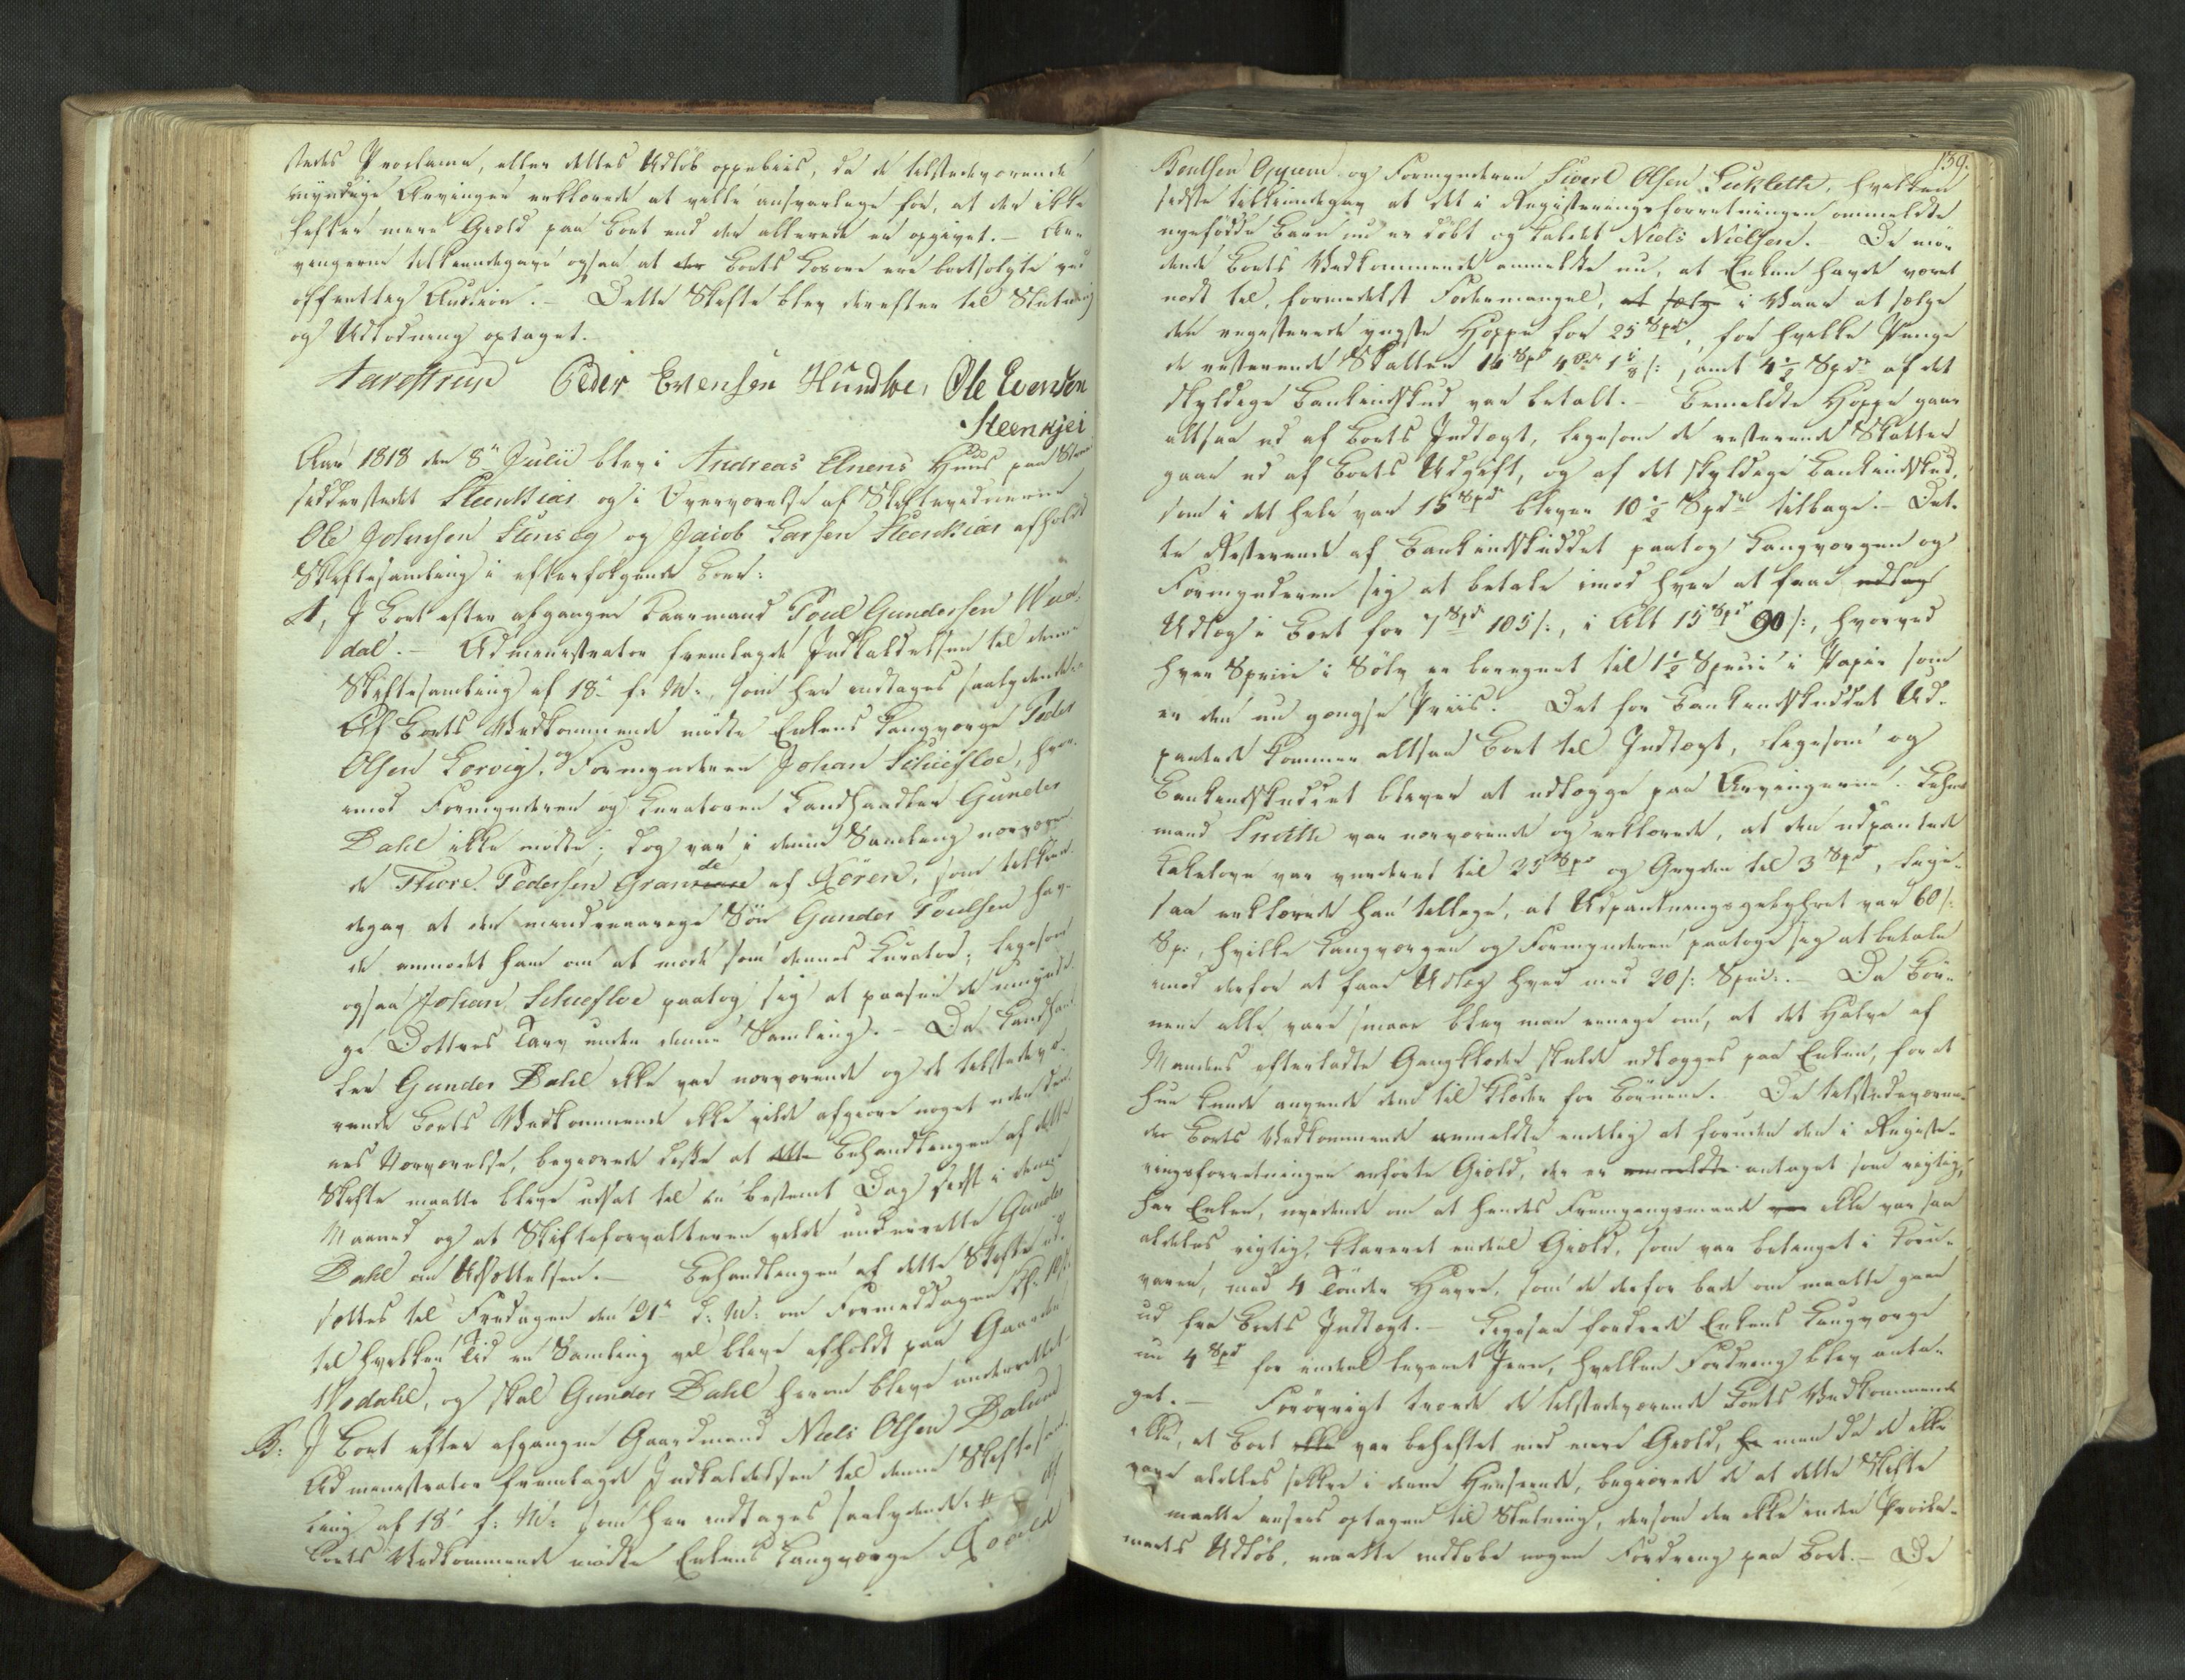 stedes Proclama, eller dettes Udløb oppebies, da de tilstedeværende
myndige Arvinger erklærede at ville ansvarlige for, at der ikke
hefter mere Giæld paa Boet end der allerede er opgivet. – Ar-
vingerne tilkiendegave ogsaa at der Boets Løsøre ere bortsolgte ved
offentlig Auction. – Dette Skifte blev derefter til Slutning
og Udlodning optaget.
Peder Evensen Hundloe, Ole Evensen
Steenkjer
Aar 1818 den 8de Julii blev i Andreas Elnens Huus paa Strand-
sidderstedet Steenkiær og i Overværelse af Skiftevidnerne
Ole Johnsen og Jacob Larsen Steenkiær afholdt
Skiftesamling i efterfølgende Boer:
A, I Boet efter afgangen Gaarmand Poul Gundersen Waa-
dal. – Administrator fremlagde Indkaldelsen til denne
Skiftesamling af 18de f: M:, som her indtages saalydende:
Af Boets Vedkommende mødte Enkens Laugværge Peder
Olsen Korvig, og Formynderen Johan Schiefloe, hvor-
imod Formynderen og Curatoren Landhandler Gunder
Dahl ikke mødte; dog var i denne Samling nærværen-
de Thore Pedersen Grande af Røren, som tilkien-
degav at den mindreaarige Søn Gunder Poulsen hav-
de anmodet ham om at møde som dennes Curator; ligesom
ogsaa Johan Schiefloe paatog sig at paasee de umyndi-
ge Døttres Tarv under denne Samling. – Da Landhand-
ler Gunder Dahl ikke var nærværende og de tilstedevæ-
rende Boets Vedkommende ikke vilde afgiøre noget uden den-
nes Nærværelse, begiærede diske at dette Behandlingen af dette
Skifte maatte blive udsat til en bestemt Dag sidst i denne
Maaned og at Skifteforvalteren vilde underrette Gunder
Dahl om Udsættelsen. – Behandlingen af dette Skifte ud-
sættes til Fredagen den 31te d: M: om Formiddagen Kl. 10,
til hvilken Tid en Samling vil blive afholdt paa Gaarden
Wodahl, og skal Gunder Dahl herom blive underrettet.
B: I Boet efter afgangen Gaardmand Niels Olsen Dalum
Administrator fremlagde Indkaldelsen til denne Skiftesam-
ling af 18de f: M: som her indtages saalydende: Af
Boets Vedkommende mødte Enkens Laugværge Roald
139.
Boulsen Opjum og Formynderen Siverl Olsen Lucklette, hvilken
sidste tilkiendegav at det i Registeringsforretningen ommeldte
nyefødde Barn nu er døbt og kaldet Niels Nielsen. – De mø-
dende Boets Vedkommende anmeldte nu, at Enken havde været
nødt til, formedelst Fodermangel, at sælg i Vaar at sælge
den registerede yngste Hoppe for 25 Spd, for hvilke Penge
de resterende Skatter 14 Spd 4 Ort 1 s:, samt 4½ Spd af det
skyldige Bankindskud var betalt. – Bemeldte Hoppe gaar
altsaa ud af Boets Indtægt, ligesom de resterende Skatter
gaar ud af Boets Udgift, og af det skyldige Bankindskud,
som i det hele var 15 Spd bliver 10½ Spd tilbage. – Det-
te Resterende af Bankindskuddet paatog Laugværgen og
Formynderen sig at betale imod hver at faae udlæg
Udlæg i Boet for 7 Spd 105 s:, i Alt 15 Spd 90 s:, hvorved
hver Specie i Sølv er beregnet til 1½ Specie i Papir som
er den nu gængse Priis. Det for Bankindskuddet Ud-
pantede kommer altsaa Boet til Indtægt, ligesom og
Bankindskuddet bliver at udlægge paa Arvingerne. Lehns-
mand var nærværende og erklærede, at den udpantede
Kakelovn var vurderet til 25 Spd og Gryden til 3 Spd, lige-
saa erklærede han tillige, at Udpantningsgebyhret var 60 s:
Sp:, hvilke Laugværgen og Formynderen paatoge sig at betale
imod derfor at faae Udlæg hver med 30 s: Specie. – Da Bør-
nene alle vare smaae blev man eenige om, at det Halve af
Mandens efterladte Gangklæder skulde udlægges paa Enken, for at
hun kunde anvende dem til Klæder for Børnene. De tilstedeværen-
de Boets Vedkommende anmeldte endelig at foruden den i Registe-
ringsforretningen anførte Giæld, der er anmeldte antaget som rigtig,
har Enken, uvidende om at hendes Fremgangsmaade var ikke var saa
aldeles rigtig, klareret endeel Giæld, som var betinget i Korn-
varer, med 4 Tønder Havre, som de derfor bade om maatte gaae
ud fra Boets Indtægt. – Ligesaa fordrede Enkens Laugværge
nu 4 Spd for endeel leveret Jern, hvilken Fordring blev anta-
get. – Forøvrigt troede de tilstedeværende Boets Vedkommende
ikke, at Boet ikke var beheftet med mere Giæld, men da de ikke
vare aldeles sikkre i denne Henseende, begiærede de at dette Skifte
maatte ansees optagen til Slutning, dersom der ikke inden Procla-
mets Udløb, maatte indløbe nogen Fordring paa Boet. – De